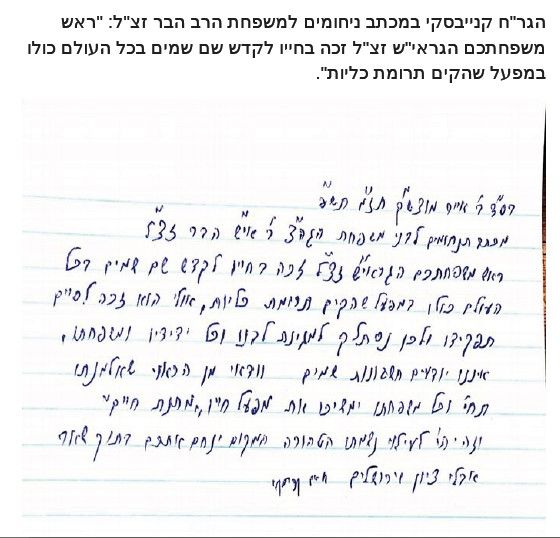 הגר"ח קנייבסקי במכתב ניחומים למשפחת הרב הבר זצ"ל: "ראש
משפחתכם הגראי"ש זצ"ל זכה בחייו לקדש שם שמים בכל העולם כולו
במפעל שהקים תרומת כליות".
בס"ד ר' אייר מוצש"ק תזו"מ תש"פ
מכתב תנחומים לבני משפחת הגה"צ ר' אי"ש הבר זצ"ל
ראש משפחתכם הגראי"ש זצ"ל זכה בחייו לקדש שם שמים בכל
העולם כולו במפעל שהקים תרומת כליות, אולי הוא זכה לסיים
תפקידו ולכן נסתלק למגינת לבנו וכל ידידיו ומשפחתו,
איננו יודעים חשבונות שמים וודאי מן הראוי שאלמנתו
תחי' וכל משפחתו ימשיכו את מפעל חייו "מתנת חיים"
וזה יהי' לעילוי נשמתו הטהורה המקום ינחם אתכם בתוך שאר
אבלי ציון וירושלים חיים קניבסקי